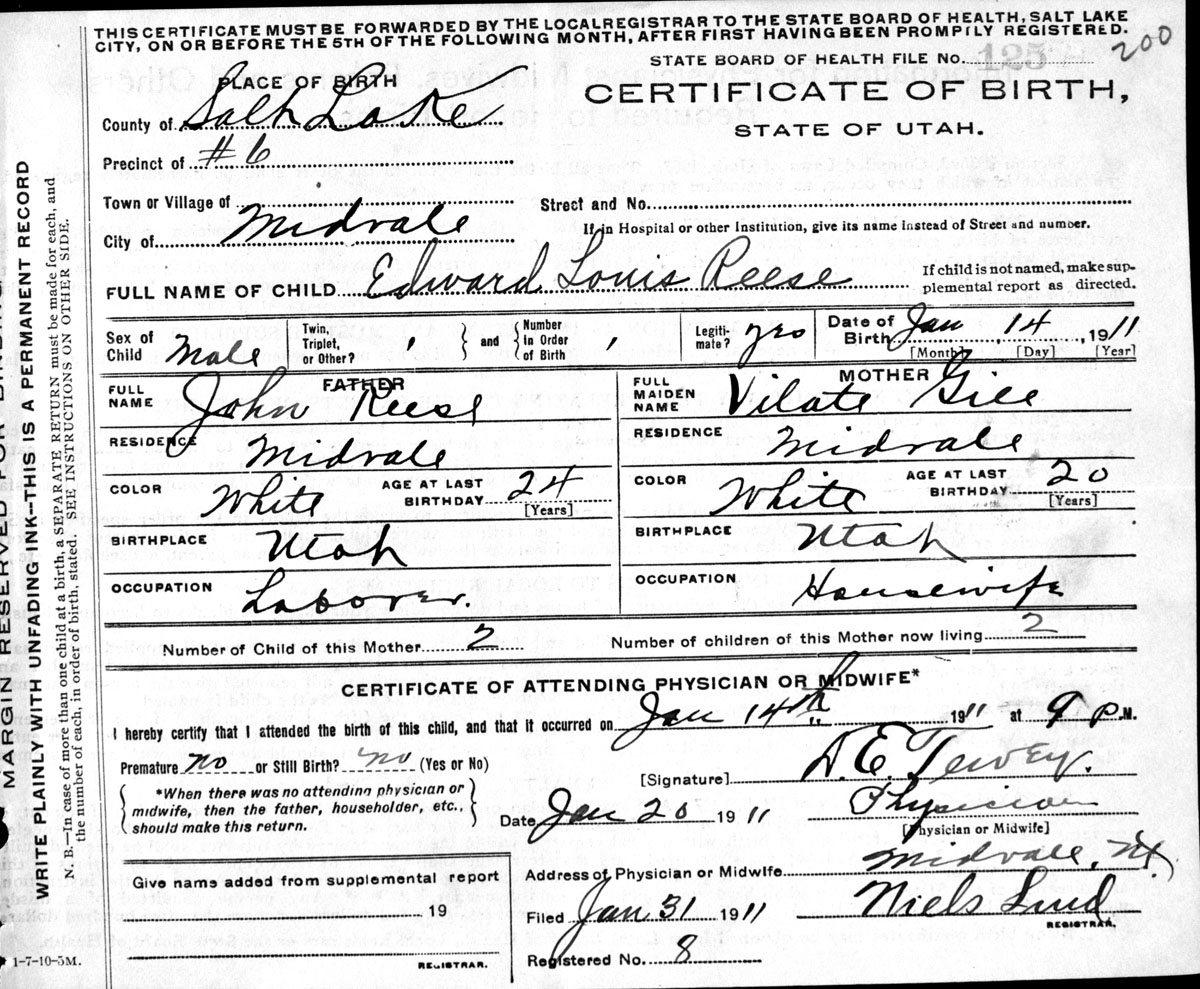 THIS CERTIFICATE MUST BE FORWARDED BY THE LOCAL REGISTRAR TO THE STATE BOARD OF HEALTH, SALT LAKE
CITY, ON OR BEFORE THE 5TH OF THE FOLLOWING MONTH, AFTER FIRST HAVING BEEN PROMPILY REGISTERED.
200
STATE BOARD OF HEALTH FILE NO. 125
PLACE OF BIRTH
CERTIFICATE OF BIRTH,
STATE OF UTAH.
County of Salt Lake
Precinct of #6
Town or Village of
Street and No.
City of Midvale
If in Hospital or other Institution, give its name instead of Street and number.
FULL NAME OF CHILD Edward Louis Reese
If child is not named, make sup-
plemental report as directed.
Sex of Child Male Twin, Triplet, or Other? { and } Number in Order of Birth Legiti- mate? yes Date of Birth Jan 14, 1911
[Month] [Day] [Year]
FATHER
MOTHER
FULL NAME John Reese
FULL MAIDEN NAME Vilate Gill
RESIDENCE Midvale
RESIDENCE Midvale
COLOR White AGE AT LAST BIRTHDAY 24 [Years]
COLOR White AGE AT LAST BIRTHDAY 20 [Years]
BIRTHPLACE Utah
BIRTHPLACE Utah
OCCUPATION Laborer.
OCCUPATION Housewife
Number of Child of this Mother 2 Number of children of this Mother now living 2
CERTIFICATE OF ATTENDING PHYSICIAN OR MIDWIFE*
I hereby certify that I attended the birth of this child, and that it occurred on Jan 14th, 1911 at 9 P.M.
Premature no or Still Birth? no (Yes or No)
[Signature] D. E. Tewey.
*When there was no attending physician or
midwife, then the father, householder, etc.,
should make this return.
Date Jan 20 1911 Physician
[Physician or Midwife]
Address of Physician or Midwife Midvale, Ut.
Give name added from supplemental report
19
REGISTRAR.
Filed Jan 31 1911 Niels Lind
REGISTRAR.
Registered No. 8
1-7-10-5M.
MARGIN RESERVED FOR BINDING
WRITE PLAINLY WITH UNFADING INK—THIS IS A PERMANENT RECORD
N. B.—In case of more than one child at a birth, a SEPARATE RETURN must be made for each, and
the number of each, in order of birth, stated. SEE INSTRUCTIONS ON OTHER SIDE.